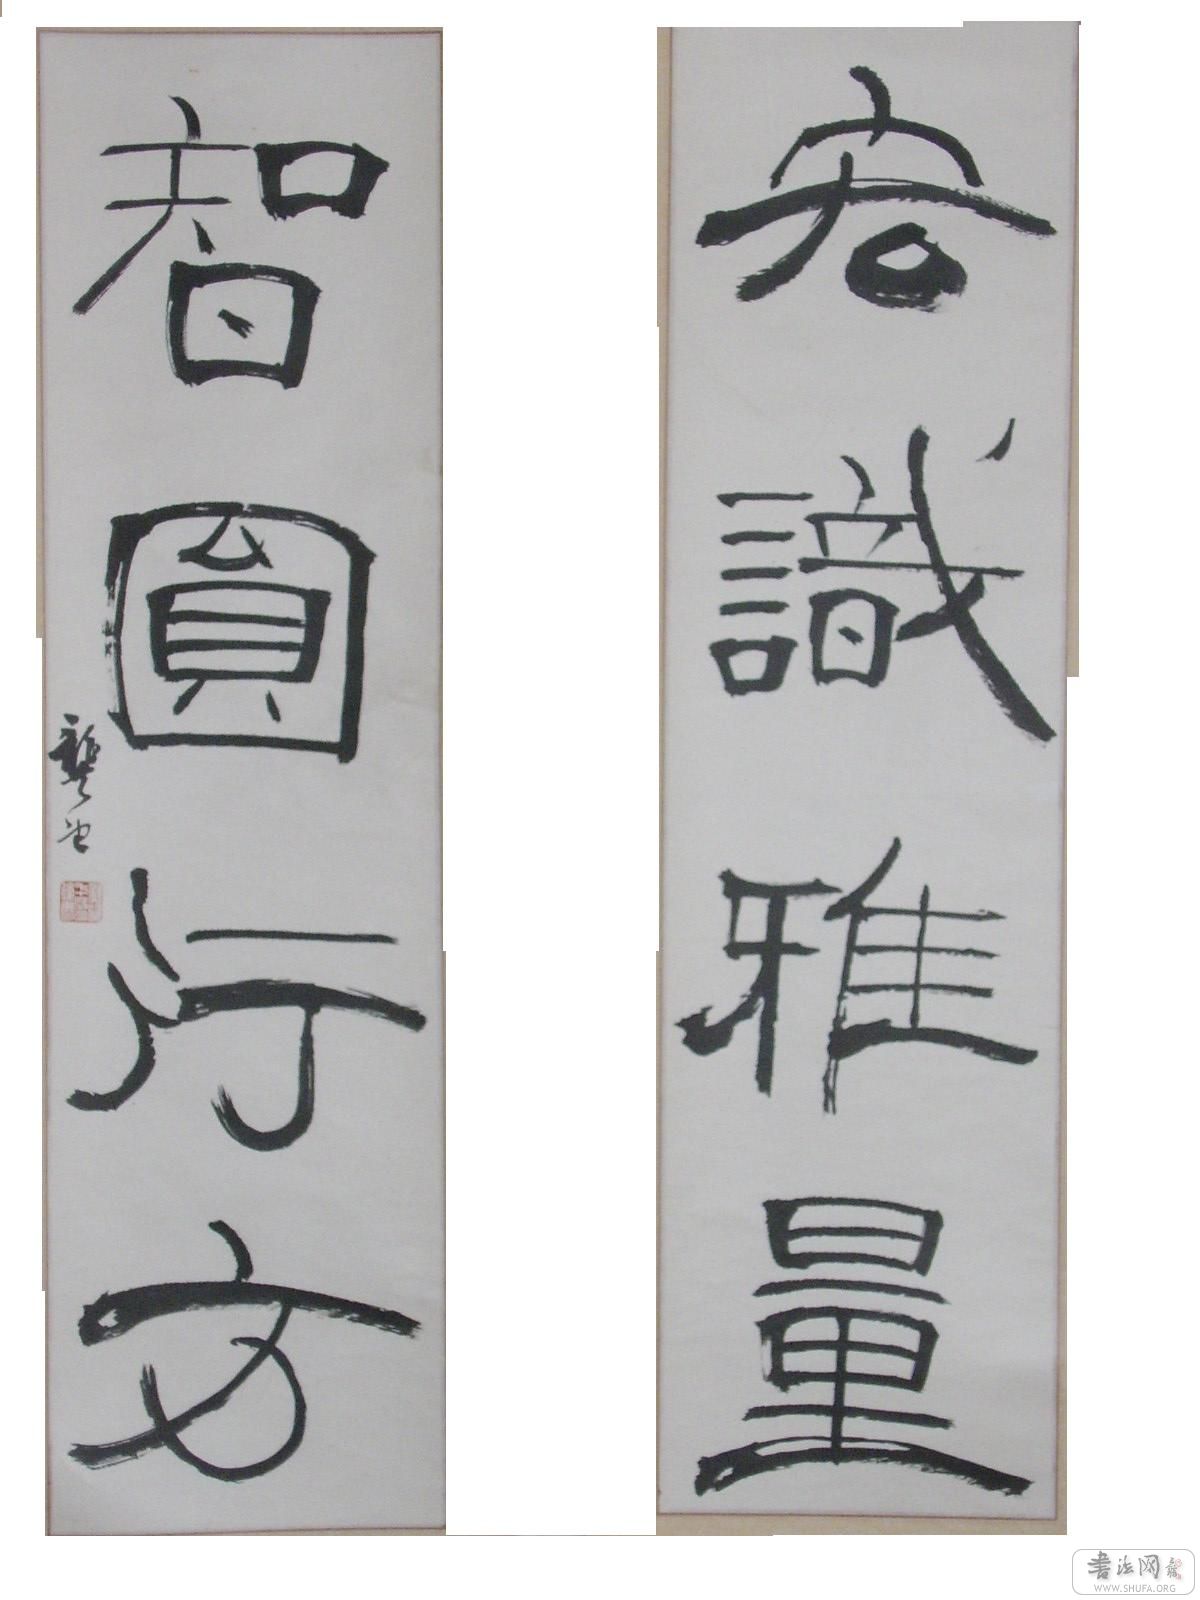 宏識雅量
智圓行方
龔望
書法网
WWW.SHUFA.ORG